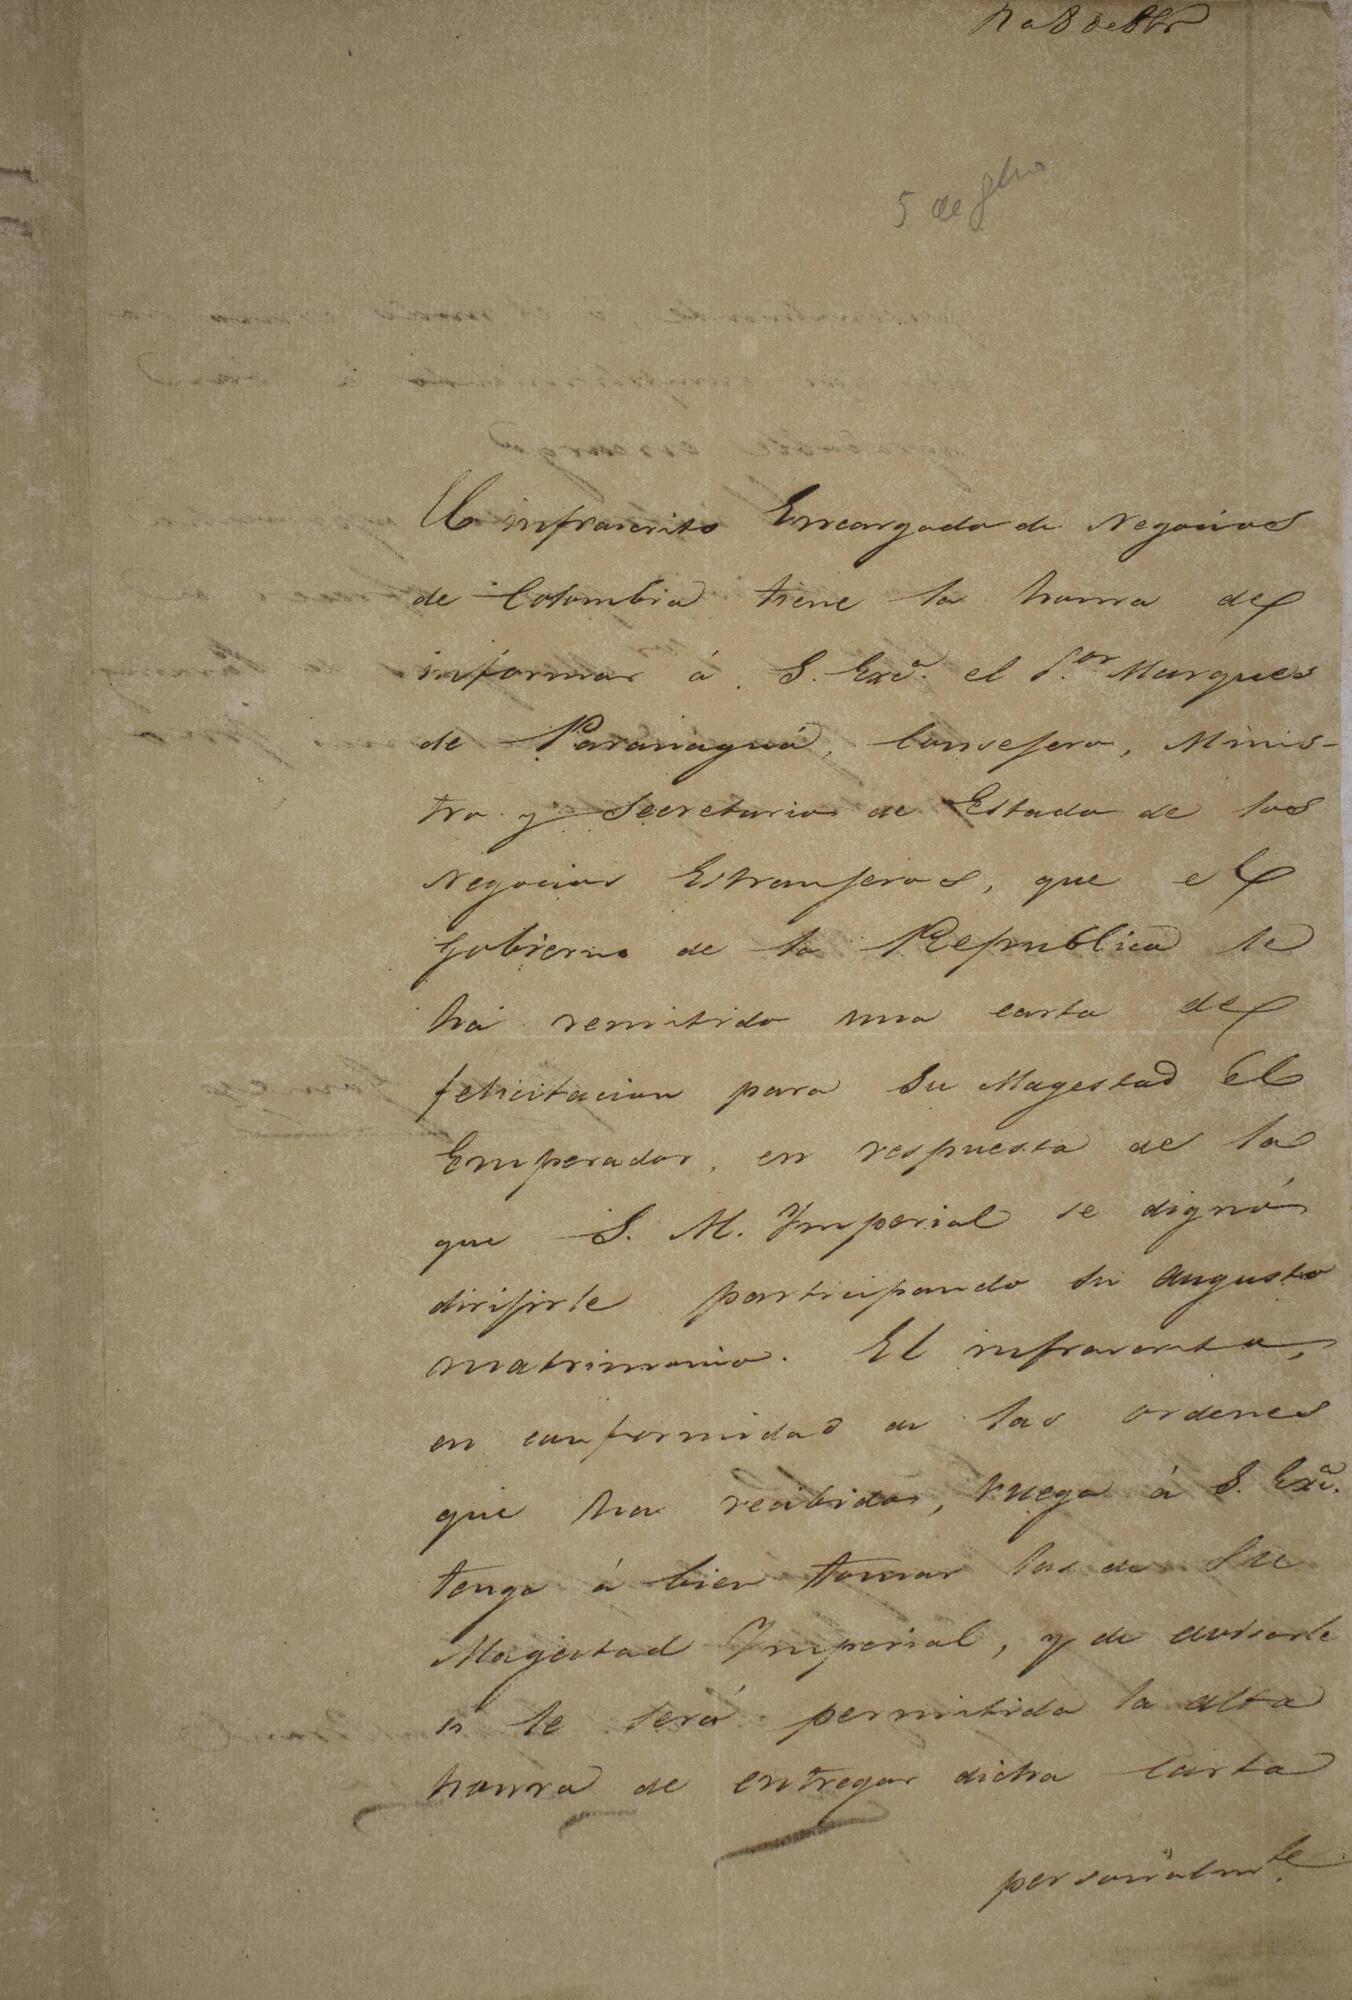 R a 8 de 8bro
5 de
El infrascrito Encargado de Negocios
de Colombia tiene la honra de
informar á S. Exca. el Sor. Marques
de Paranaguá, Consejero, Minis-
tro y Secretario de Estado de los
Negocios Estranjeros, que el
Gobierno de la Republica le
há remitido una carta de
felicitacion para Su Magestad El
Emperador, en respuesta de la
que S. M. Imperial se dignó
dirijirle participando su augusto
matrimonio. El infrascrito,
en conformidad de las ordenes
que ha recibido, ruega á S. Exca.
tenga á bien tomar las de Su
Magestad Imperial, y de avisarle
si le será permitida la alta
honra de entregar dicha carta
personalmte.